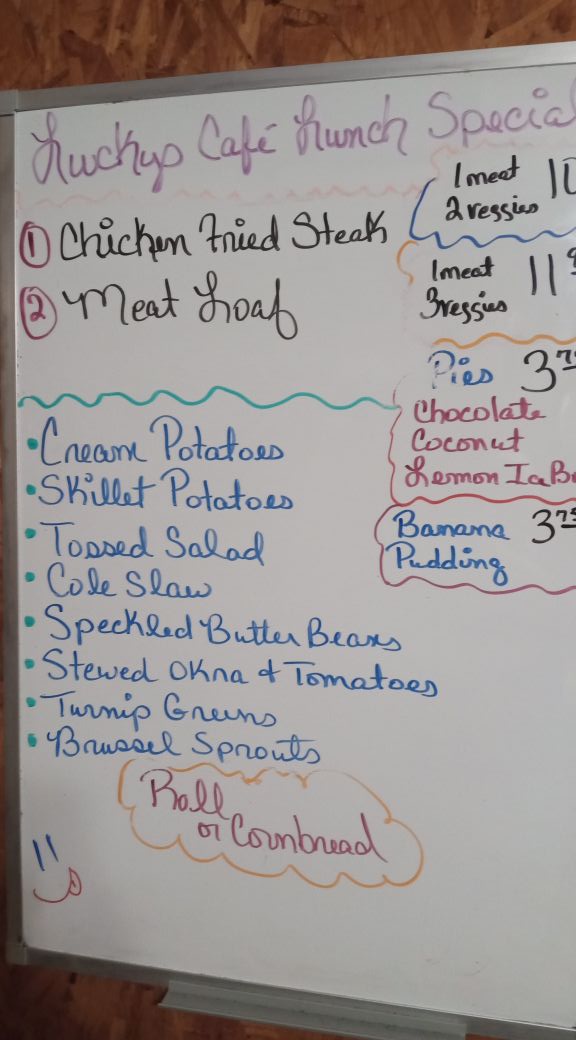 Luckys Café Lunch Special
① Chicken Fried Steak
② Meat Loaf
1 meat 10
2 veggies
1 meat 11
3 veggies
Pies 3.75
Chocolate
Coconut
Lemon
Banana 3.75
Pudding
• Cream Potatoes
• Skillet Potatoes
• Tossed Salad
• Cole Slaw
• Speckled Butter Beans
• Stewed Okra & Tomatoes
• Turnip Greens
• Brussel Sprouts
Roll
or Cornbread